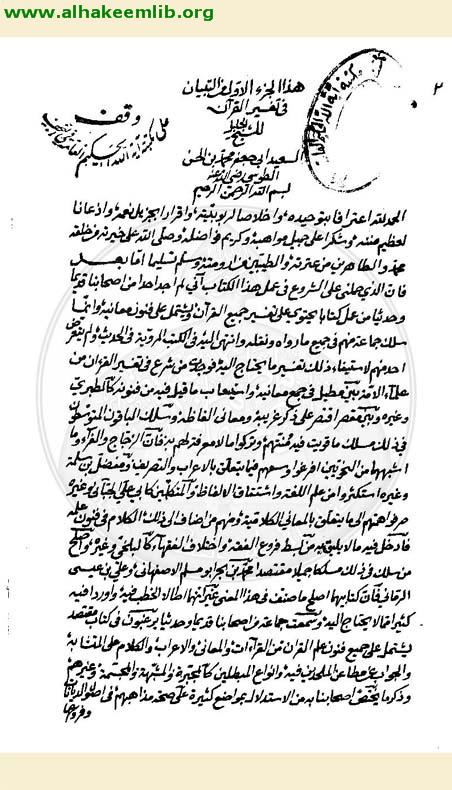 www.alhakeemlib.org
٢
هذا الجزء الاول من التبيان
في تفسير القرآن
للشيخ الجليل
وقف
السعيد ابي جعفر محمد بن الحسن
الطوسي رضي الله عنه
بسم الله الرحمن الرحيم
الحمد لله اعترافا بتوحيده واخلاصا لربوبيته واقرارا بجزيل نعمه واذعانا
لعظيم منته وشكرا على جميل مواهبه وكريم فواضله وصلى الله على خيرته من خلقه
محمد والطاهرين من عترته والطيبين من ارومته وسلم تسليما اما بعد
فان الذي حملني على الشروع في عمل هذا الكتاب اني لم اجد احدا من اصحابنا قديما
وحديثا من عمل كتابا يحتوي على تفسير جميع القرآن ويشتمل على فنون معانيه وانما
سلك جماعة منهم في جميع ما رواه ونقله وانتهى اليه في الكتب المروية في الحديث ولم يتعرض
احد منهم لاستيفاء ذلك وتفسير ما يحتاج اليه فوجدت من شرع في تفسير القرآن من
علماء الامة بين مطيل في جميع معانيه واستيعاب ما قيل فيه من فنونه كالطبري
وغيره وبين مقصر اقتصر على ذكر غريبه ومعاني الفاظه وسلك الباقون المتوسطون
في ذلك مسلك ما قويت فيه منتهم وتركوا ما لا معرفة لهم به فان الزجاج والفراء وما
اشبههما من النحويين افرغوا وسعهم فيما يتعلق بالاعراب والتصريف ومفضل بن سلمة
وغيره استكثروا من علم اللغة واشتقاق الالفاظ والمتكلمين كابي علي الجبائي وغيره
صرفوا همتهم الى ما يتعلق بالمعاني الكلامية ومنهم من اضاف الى ذلك الكلام في فنون علمه
فادخل فيه ما لا يليق به من بسط فروع الفقه واختلاف الفقهاء كالبلخي وغيره واصلح
من سلك في ذلك مسلكا جميلا مقتصدا محمد بن بحر ابو مسلم الاصفهاني وعلي بن عيسى
الرماني فان كتابيهما اصلح ما صنف في هذا المعنى غير انهما اطالا الخطب فيه واوردا فيه
كثيرا مما لا يحتاج اليه وسمعت جماعة من اصحابنا قديما وحديثا يرغبون في كتاب مقتصد
يشتمل على جميع فنون علم القرآن من القراءات والمعاني والاعراب والكلام على المتشابه
والجواب عن مطاعن الملحدين فيه وانواع المبطلين كالمجبرة والمشبهة والمجسمة وغيرهم
وذكر ما يختص اصحابنا به من الاستدلال بمواضع كثيرة على صحة مذاهبهم في اصول الديانات
وفروعها